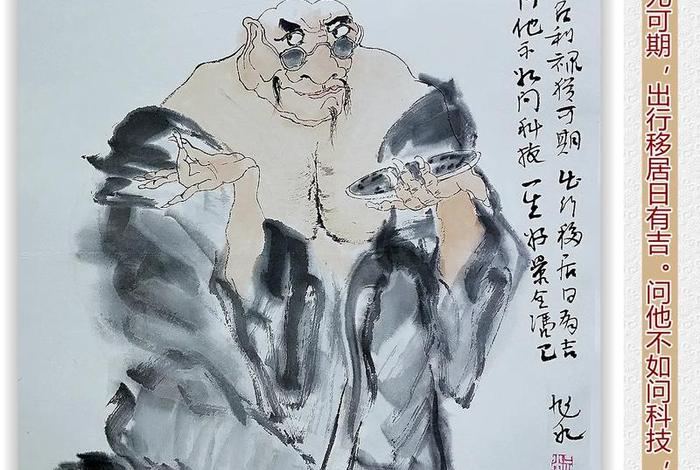 可期，出行移居日有吉。问他不如问科技，
利祸犹可期出行移居日有吉
他不如问科技一生好景全凭己